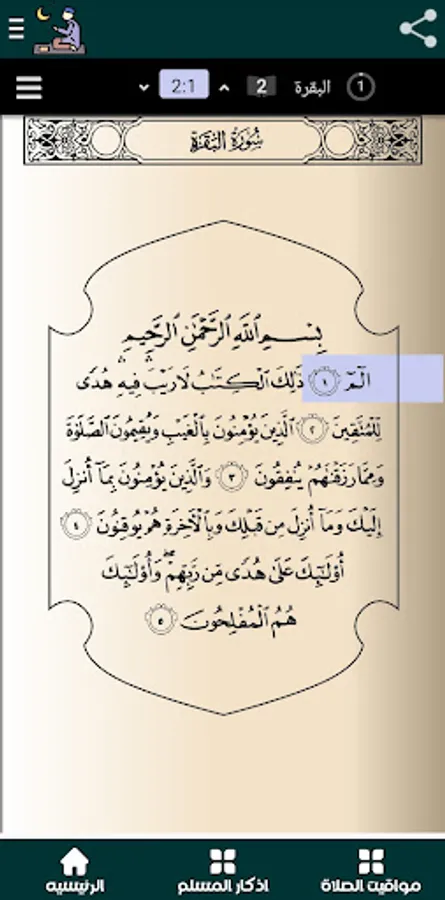 1 البقرة 2 2:1
سُورَةُ البَقَرَةِ
بِسْمِ ٱللَّهِ ٱلرَّحْمَٰنِ ٱلرَّحِيمِ
الٓمٓ ١ ذَٰلِكَ ٱلْكِتَٰبُ لَا رَيْبَ ۛ فِيهِ ۛ هُدًى
لِّلْمُتَّقِينَ ٢ ٱلَّذِينَ يُؤْمِنُونَ بِٱلْغَيْبِ وَيُقِيمُونَ ٱلصَّلَوٰةَ
وَمِمَّا رَزَقْنَٰهُمْ يُنفِقُونَ ٣ وَٱلَّذِينَ يُؤْمِنُونَ بِمَآ أُنزِلَ
إِلَيْكَ وَمَآ أُنزِلَ مِن قَبْلِكَ وَبِٱلْأَخِرَةِ هُمْ يُوقِنُونَ ٤
أُو۟لَٰٓئِكَ عَلَىٰ هُدًى مِّن رَّبِّهِمْ ۖ وَأُو۟لَٰٓئِكَ
هُمُ ٱلْمُفْلِحُونَ ٥
مواقيت الصلاة
اذكار المسلم
الرئيسيه